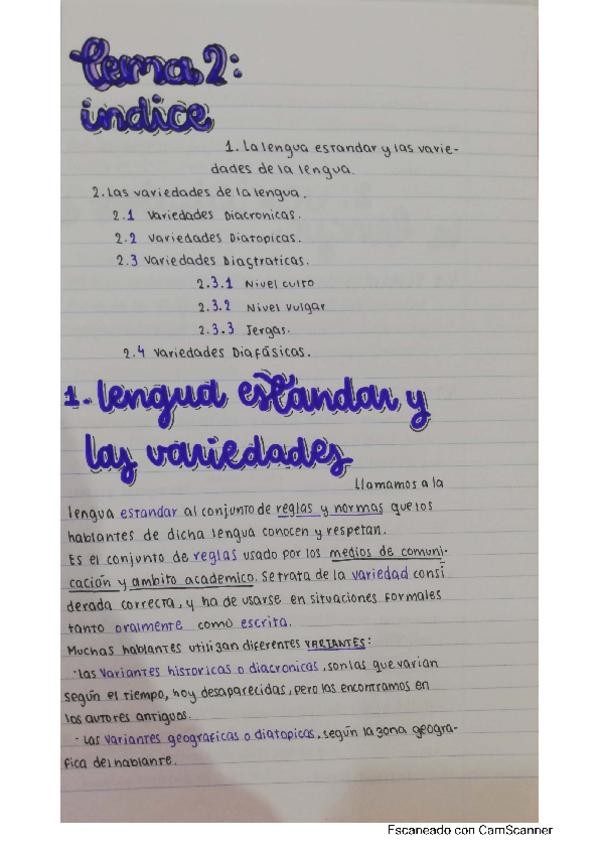 tema 2:
indice
1. La lengua estandar y las varie-
dades de la lengua.
2. Las variedades de la lengua.
2.1 Variedades Diacronicas.
2.2 Variedades Diatopicas.
2.3 Variedades Diastraticas.
2.3.1 Nivel culto
2.3.2 Nivel vulgar
2.3.3 Jergas.
2.4 Variedades Diafásicas.
1. lengua estandar y
las variedades
Llamamos a la
lengua estandar al conjunto de reglas y normas que los
hablantes de dicha lengua conocen y respetan.
Es el conjunto de reglas usado por los medios de comuni-
cación y ambito academico. Se trata de la variedad consi
derada correcta, y ha de usarse en situaciones formales
tanto oralmente como escrita.
Muchas hablantes utilizan diferentes VARIANTES:
·Las Variantes historicas o diacronicas, son las que varian
según el tiempo, hoy desaparecidas, pero las encontramos en
los autores antiguos.
- Las variantes geograficas o diatopicas, según la zona geogra-
fica del hablante.
Escaneado con CamScanner